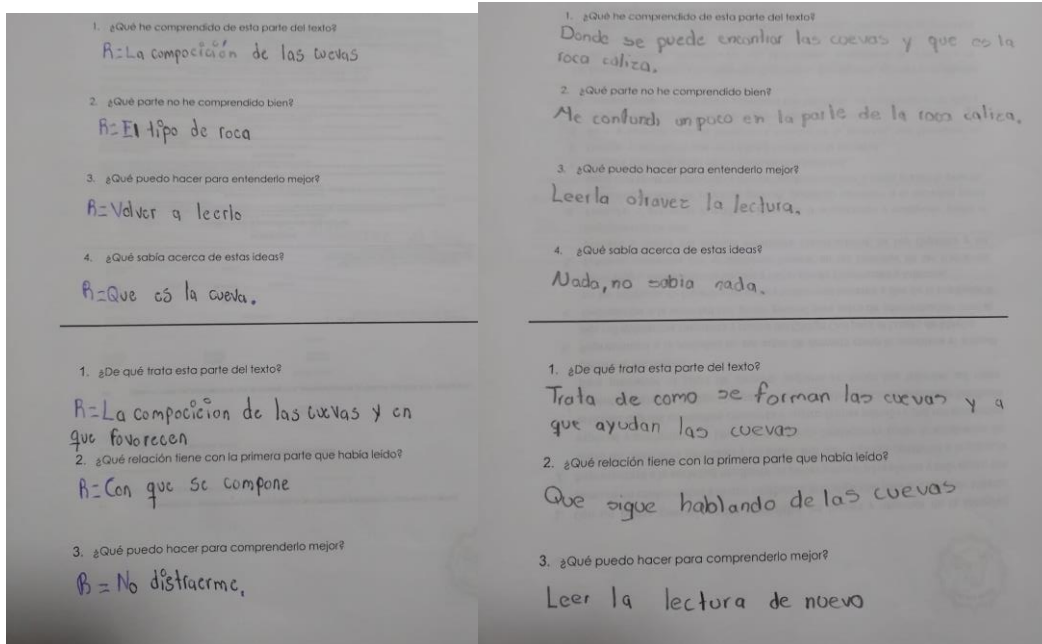 1. ¿Qué he comprendido de esta parte del texto?
R=La compocición de las cuevas
2. ¿Qué parte no he comprendido bien?
R=El tipo de roca
3. ¿Qué puedo hacer para entenderlo mejor?
R=Volver a leerlo
4. ¿Qué sabía acerca de estas ideas?
R=Que es la cueva.
1. ¿De qué trata esta parte del texto?
R=La compocicion de las cuevas y en
que favorecen
2. ¿Qué relación tiene con la primera parte que había leído?
R=Con que se compone
3. ¿Qué puedo hacer para comprenderlo mejor?
R=No distraerme.
1. ¿Qué he comprendido de esta parte del texto?
Donde se puede encontrar las cuevas y que es la
roca caliza.
2. ¿Qué parte no he comprendido bien?
Me confundi un poco en la parte de la roca caliza.
3. ¿Qué puedo hacer para entenderlo mejor?
Leerla otravez la lectura.
4. ¿Qué sabía acerca de estas ideas?
Nada, no sabia nada.
1. ¿De qué trata esta parte del texto?
Trata de como se forman las cuevas y a
que ayudan las cuevas
2. ¿Qué relación tiene con la primera parte que había leído?
Que sigue hablando de las cuevas
3. ¿Qué puedo hacer para comprenderlo mejor?
Leer la lectura de nuevo